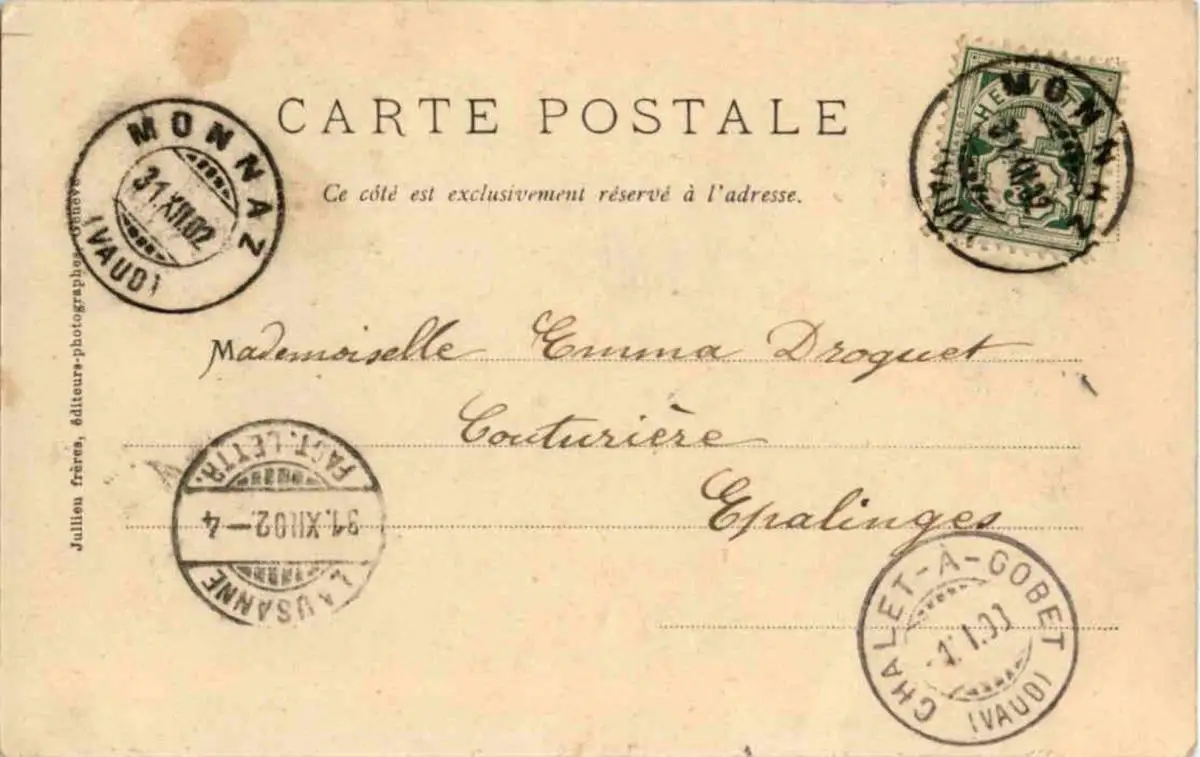 CARTE POSTALE
Ce côté est exclusivement réservé à l'adresse.
MONNAZ
31.XII.02
(VAUD)
HELVETIA
MONNAZ
31.XII.02
(VAUD)
Jullien frères, éditeurs-photographes, Genève
Mademoiselle Emma Droguet
Couturière
Epalinges
LAUSANNE
31.XII.02.–4
FACT. LETTR.
CHALET-À-GOBET
1.I.03
(VAUD)